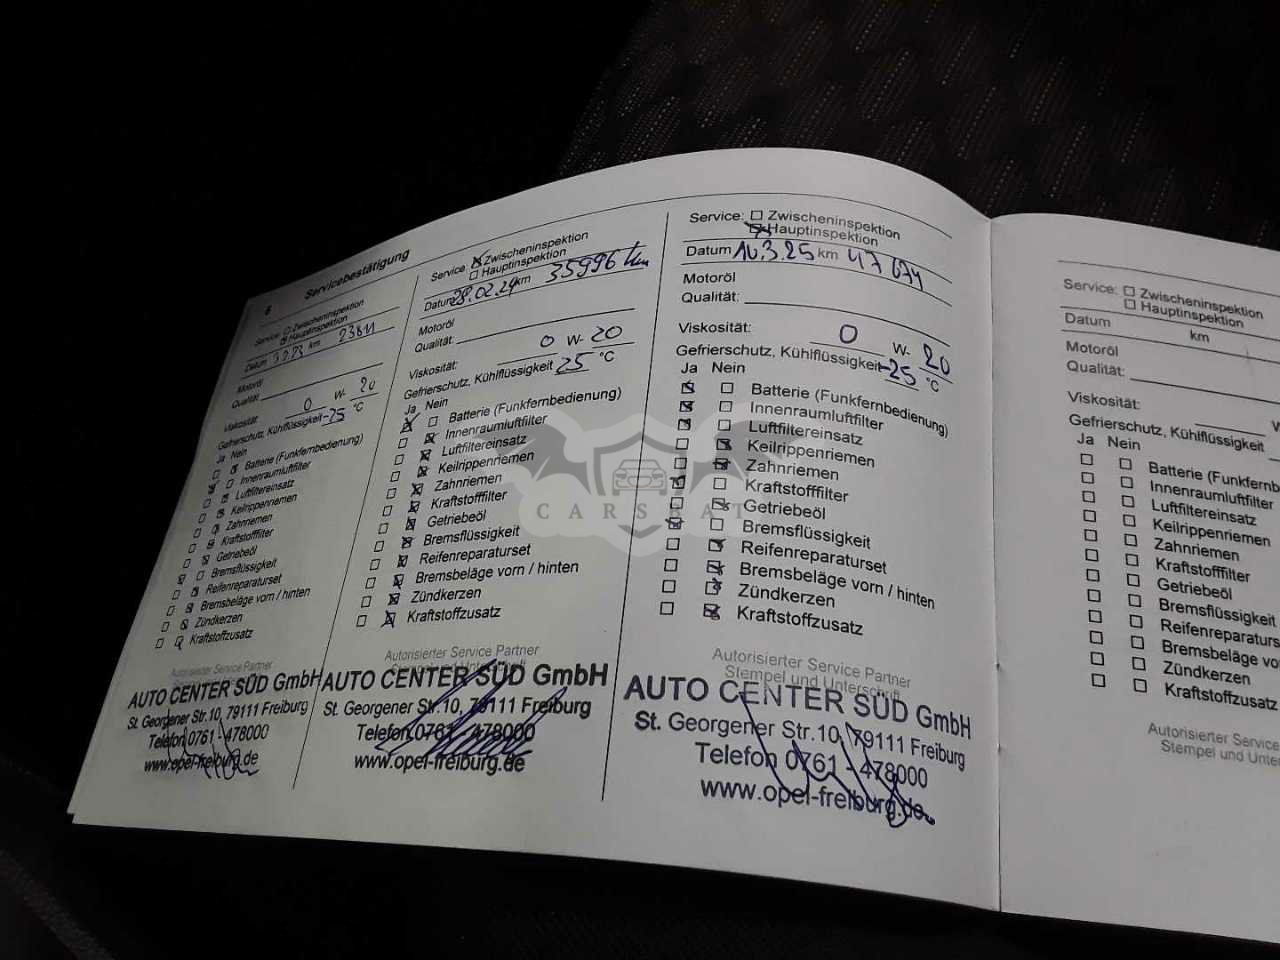 6
Servicebestätigung
Service: Zwischeninspektion
Hauptinspektion
Datum km 23811
Motoröl
Qualität:
Viskosität: 0 W- 20
Gefrierschutz, Kühlflüssigkeit -25 °C
Ja Nein
Batterie (Funkfernbedienung)
Innenraumluftfilter
Luftfiltereinsatz
Keilrippenriemen
Zahnriemen
Kraftstofffilter
Getriebeöl
Bremsflüssigkeit
Reifenreparaturset
Bremsbeläge vorn / hinten
Zündkerzen
Kraftstoffzusatz
Autorisierter Service Partner
AUTO CENTER SÜD GmbH
St. Georgener Str.10, 79111 Freiburg
Telefon 0761 - 478000
www.opel-freiburg.de
Service: Zwischeninspektion
Hauptinspektion
Datum 28.02.24 km 35996 km
Motoröl
Qualität:
Viskosität: 0 W- 20
Gefrierschutz, Kühlflüssigkeit 25 °C
Ja Nein
Batterie (Funkfernbedienung)
Innenraumluftfilter
Luftfiltereinsatz
Keilrippenriemen
Zahnriemen
Kraftstofffilter
Getriebeöl
Bremsflüssigkeit
Reifenreparaturset
Bremsbeläge vorn / hinten
Zündkerzen
Kraftstoffzusatz
Autorisierter Service Partner
Stempel und Unterschrift
AUTO CENTER SÜD GmbH
St. Georgener Str.10, 79111 Freiburg
Telefon 0761 - 478000
www.opel-freiburg.de
Service: Zwischeninspektion
Hauptinspektion
Datum km 47 674
Motoröl
Qualität:
Viskosität: 0 W- 20
Gefrierschutz, Kühlflüssigkeit -25 °C
Ja Nein
Batterie (Funkfernbedienung)
Innenraumluftfilter
Luftfiltereinsatz
Keilrippenriemen
Zahnriemen
Kraftstofffilter
Getriebeöl
Bremsflüssigkeit
Reifenreparaturset
Bremsbeläge vorn / hinten
Zündkerzen
Kraftstoffzusatz
Autorisierter Service Partner
Stempel und Unterschrift
AUTO CENTER SÜD GmbH
St. Georgener Str.10, 79111 Freiburg
Telefon 0761 - 478000
www.opel-freiburg.de
Service: Zwischeninspektion
Hauptinspektion
Datum km
Motoröl
Qualität:
Viskosität: W
Gefrierschutz, Kühlflüssigkeit
Ja Nein
Batterie (Funkfernbedien
Innenraumluftfilter
Luftfiltereinsatz
Keilrippenriemen
Zahnriemen
Kraftstofffilter
Getriebeöl
Bremsflüssigkeit
Reifenreparaturs
Bremsbeläge vorn
Zündkerzen
Kraftstoffzusatz
Autorisierter Service
Stempel und Unter
CARSBAT